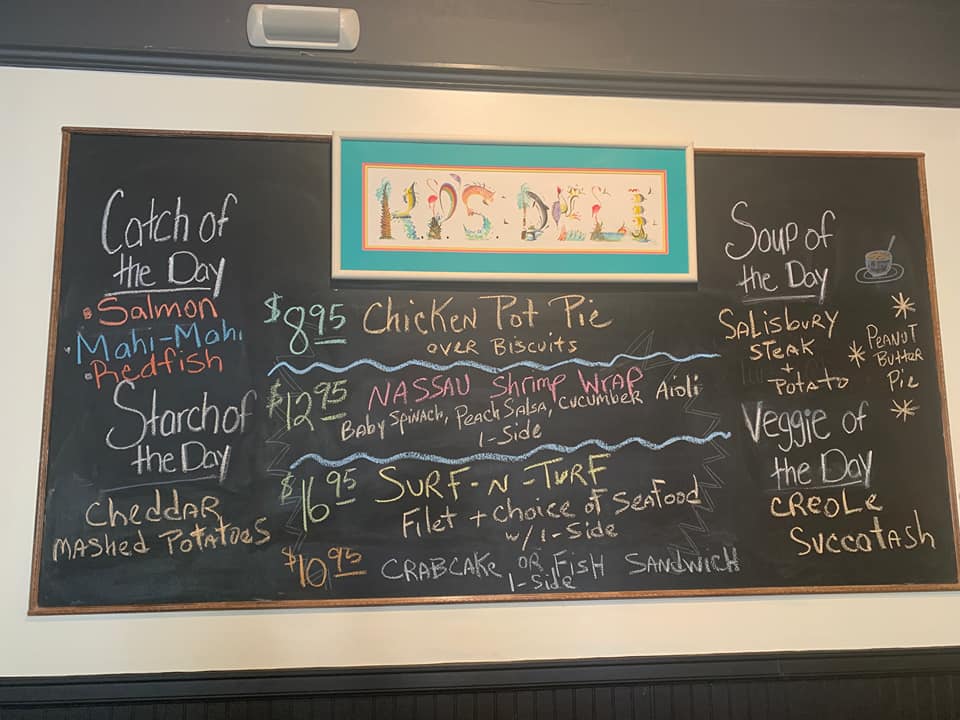 K.P'S. DELI
Catch of
the Day
Salmon
Mahi-Mahi
Redfish
Starch of
the Day
Cheddar
Mashed Potatoes
$8.95 Chicken Pot Pie
over Biscuits
$12.95 Nassau Shrimp Wrap
Baby Spinach, Peach Salsa, Cucumber Aioli
1-Side
$16.95 Surf-N-Turf
Filet + Choice of Seafood
w/1-Side
$10.95 Crabcake or Fish Sandwich
1-Side
Soup of
the Day
Salisbury
Steak
+
Potato
Peanut
Butter
Pie
Veggie of
the Day
Creole
Succotash